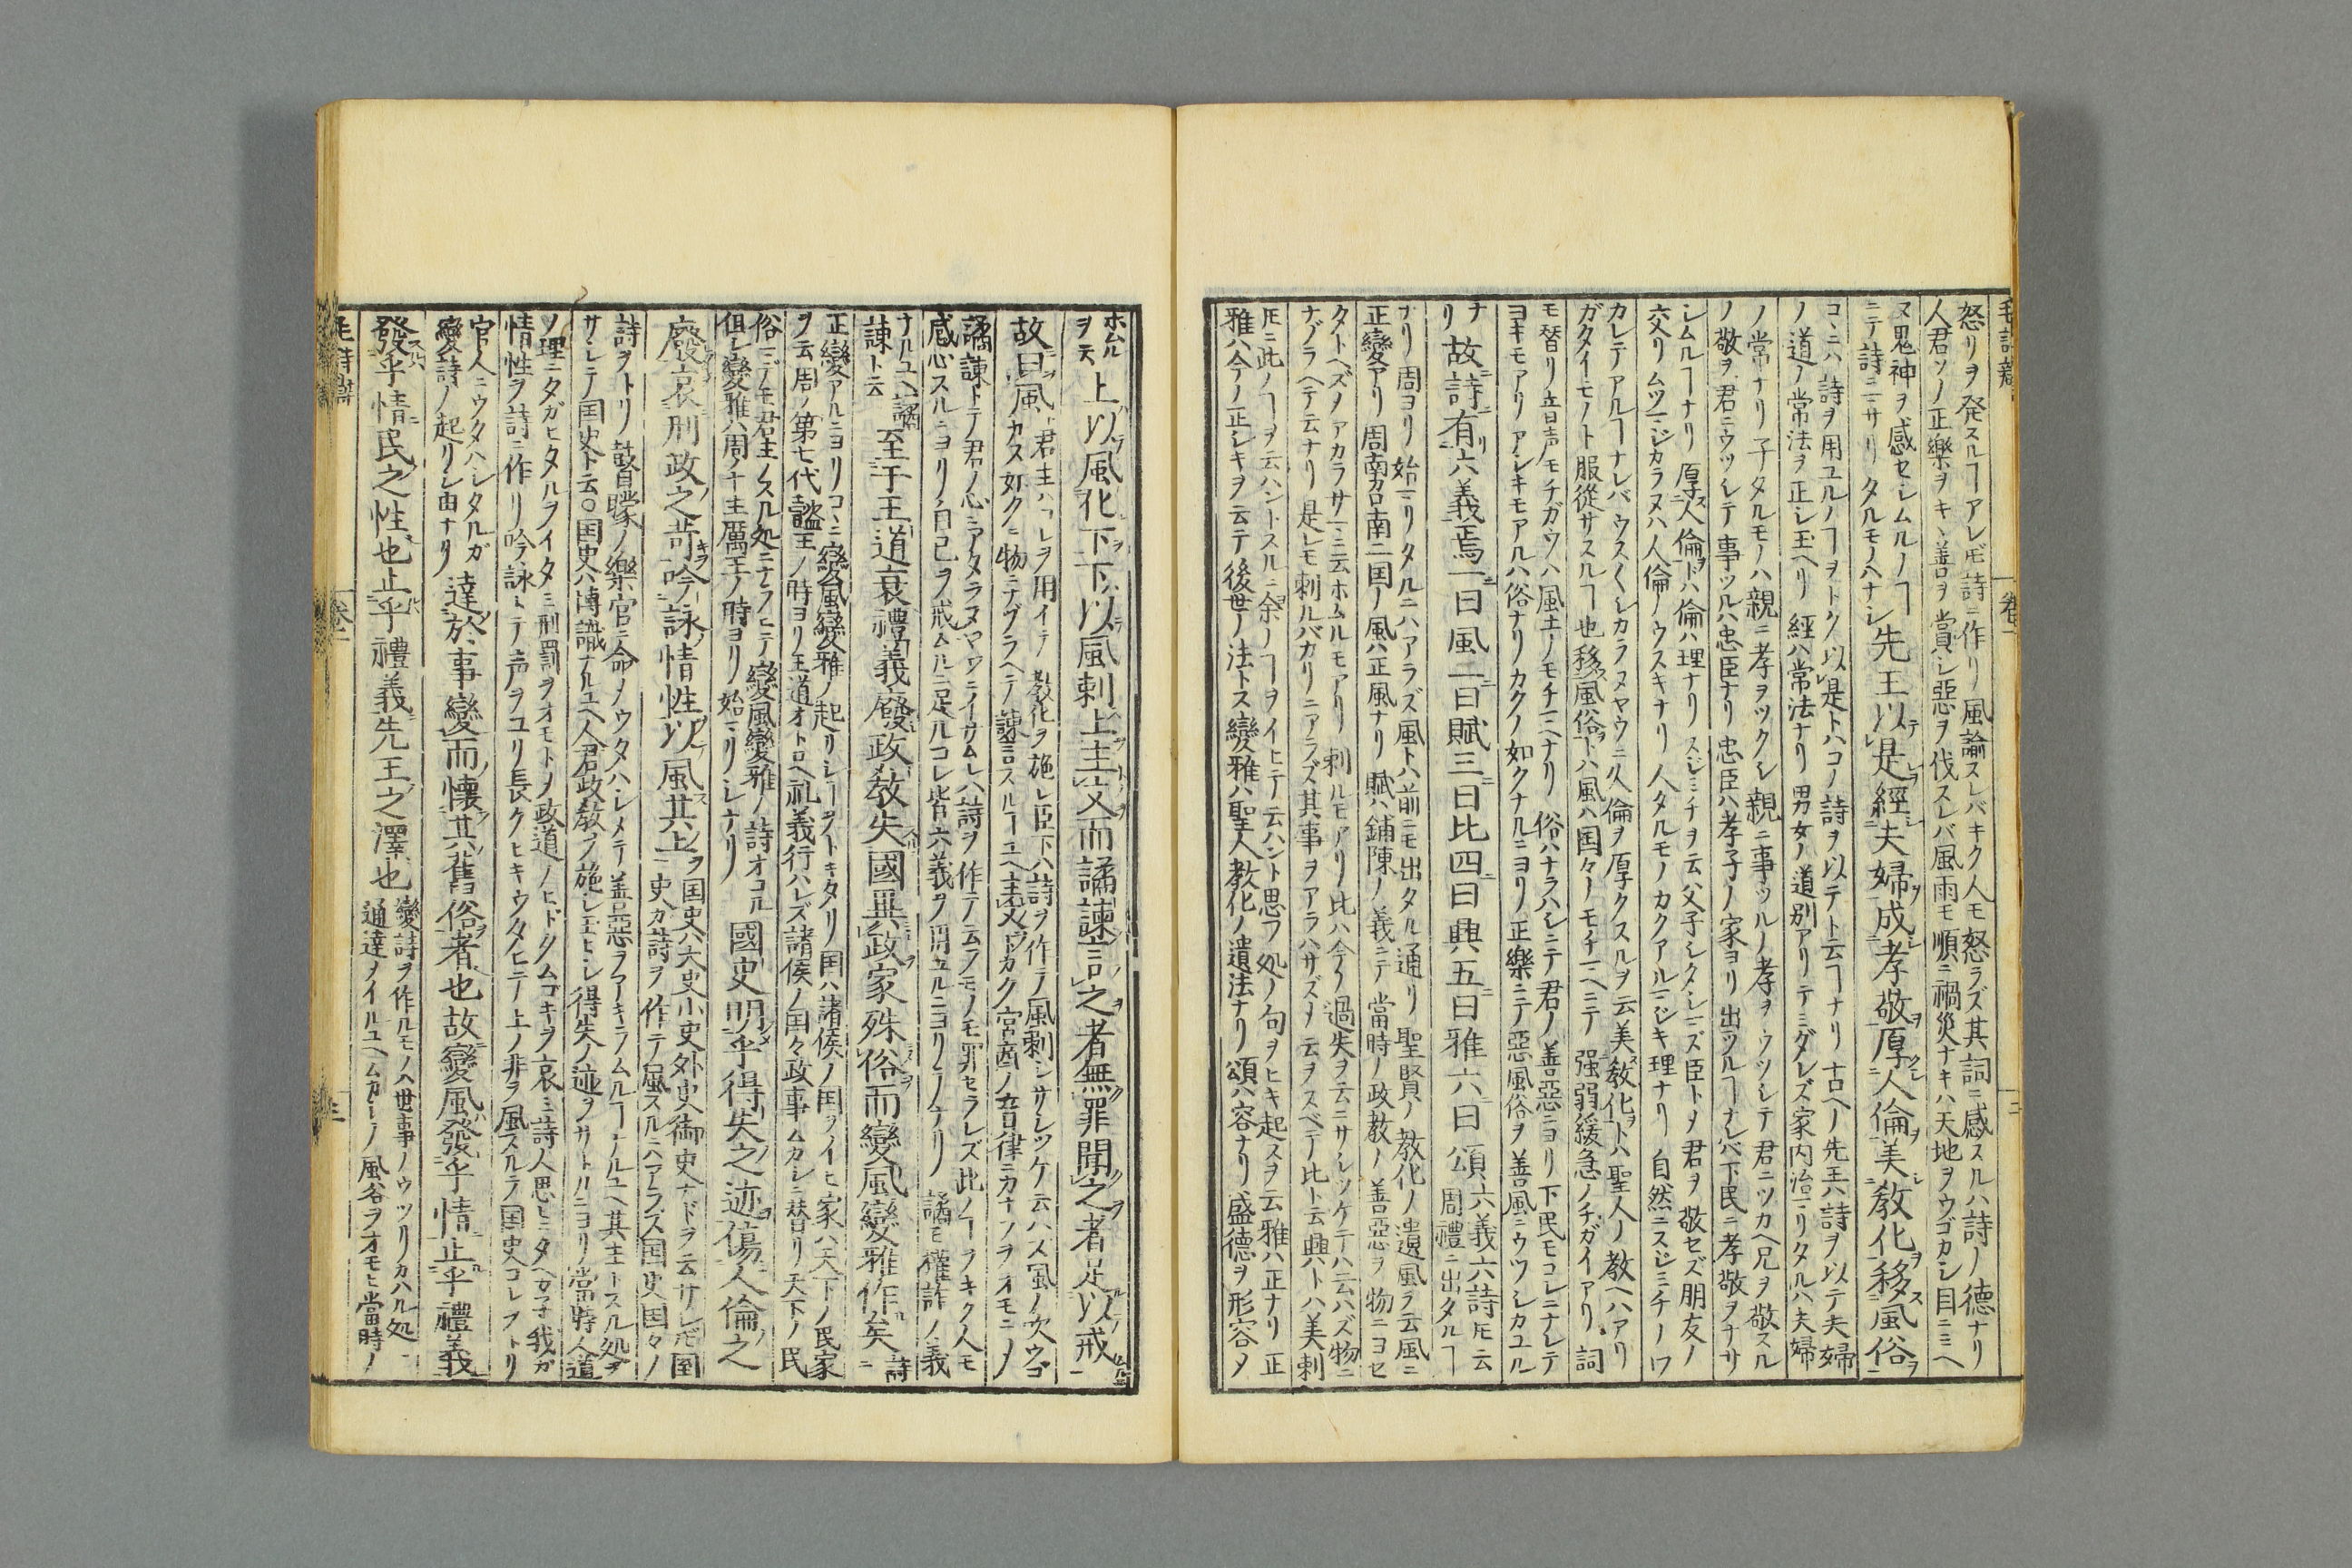 怒リヲ発スルヿアレ𪜈詩ニ作リ風諭スレバキク人モ怒ラズ其詞ニ感スルハ詩ノ德ナリ
人君ソノ正樂ヲキヽ善ヲ賞シ惡ヲ伐スレバ風雨モ順ニ禍災ナキハ天地ヲウゴカシ目ニミヘ
ヌ鬼神ヲ感セシムルノヿ
ニテ詩ニマサリタルモノハナシ
先王以是經夫婦成孝敬厚人倫美教化移風俗
コヽニハ詩ヲ用ユルノヿヲトク以是トハコノ詩ヲ以テト云ヿナリ古ヘノ先王ハ詩ヲ以テ夫婦
ノ道ノ常法ヲ正シ玉ヘリ經ハ常法ナリ男女ノ道別アリテミダレズ家内治マリタルハ夫婦
ノ常ナリ子タルモノハ親ニ孝ヲツクシ親ニ事ツルノ孝ヲウツシテ君ニツカヘ兄ヲ敬スル
ノ敬ヲ君ニウツシテ事ツルハ忠臣ナリ忠臣ハ孝子ノ家ヨリ出ヅルヿナレバ下民ニ孝敬ヲナサ
シムルヿナリ厚人倫トハ倫ハ理ナリスジミチヲ云父子シタシマズ臣トメ君ヲ敬セズ朋友ノ
交リムツマジカラヌハ人倫ノウスキナリ人タルモノカクアルマジキ理ナリ自然ニスジミチノワ
カレテアルヿナレバウスクシカラヌヤウニ人倫ヲ厚クスルヲ云美教化トハ聖人ノ教ヘハアリ
ガタイモノト服從サスルヿ也移風俗トハ風ハ国々ノモチマヘニテ强弱緩急ノチガイアリ詞
モ替リ音声モチガウハ風土ノモチマヘナリ俗ハナラハシニテ君ノ善惡ニヨリ下民モコレニナレテ
ヨキモアリアシキモアルハ俗ナリカクノ如クナルニヨリ正樂ニテ惡風俗ヲ善風ニウツシカユル
ナリ
故詩有六義焉一曰風二曰賦三曰比四曰興五曰雅六曰頌
六義六詩𪜈云
周禮ニ出タルヿ
ナリ周ヨリ始マリタルニハアラズ風トハ前ニモ出タル通リ聖賢ノ教化ノ遺風ヲ云風ニ
正變アリ周南召南二国ノ風ハ正風ナリ賦ハ鋪陳ノ義ニテ當時ノ政教ノ善惡ヲ物ニヨセ
タトヘズメアカラサマニ云ホムルモアリ刺ルモアリ比ハ今ノ過失ヲ云ニサシツケテハ云ハズ物ニ
ナゾラヘテ云ナリ是レモ刺ルバカリニアラズ其事ヲアラハサズメ云ヲスベテ比ト云興トハ美刺
𪜈ニ此ノヿヲ云ハントスルニ余ノヿヲイヒテ云ハント思フ処ノ句ヲヒキ起スヲ云雅ハ正ナリ正
雅ハ今ノ正シキヲ云テ後世ノ法トス變雅ハ聖人教化ノ遺法ナリ頌ハ容ナリ盛德ヲ形容メ
ホムル
ヲ云
上以風化下下以風刺上主文而譎諫言之者無罪聞之者足以戒
故曰風
君主ハコレヲ用イテ教化ヲ施シ臣下ハ詩ヲ作テ風刺シサシツケ云ハズ風ノ吹ウゴ
カス如クニ物ニナゾラヘテ諫言スルヿユヘ主文トカク宮商ノ音律ニカナフヲオモニメ
譎諫トテ君ノ心ニアタラヌヤウニイサムレハ詩ヲ作テ云フモノモ罪セラレズ此ノヿヲキク人モ
感心スルニヨリ自己ヲ戒ムルニ足ルコレ皆六義ヲ用ユルニヨリテナリ譎ハ權詐ノ義
ナルユヘ譎
諫ト云
至于王道衰禮義廢政教失國異政家殊俗而變風變雅作矣
詩ニ
正變アルニヨリコヽニ變風變雅ノ起リシヿヲトキタリ国ハ諸侯ノ国ヲイヒ家ハ天下ノ民家
ヲ云周ノ第七代懿王ノ時ヨリ王道オトロヘ礼義行ハレズ諸侯ノ国々政事ムカシニ替リ天下ノ民
俗マデモ君主ノスル処ニナラヒテ變風變雅ノ詩オコル
但シ變雅ハ周ノ十主厲王ノ時ヨリ始マリシナリ
國史明乎得失之迹傷人倫之
廢哀刑政之苛吟詠情性以風其上
国史ハ大史小史外史御史ナドヲ云サレ𪜈国
史カ詩ヲ作テ風スルニハアラズ国史国々ノ
詩ヲトリ瞽矇ノ樂官ニ命メウタハシメテ善惡ヲアキラムルヿナルユヘ其主トスル処ヲ
サシテ国史ト云〇国史ハ博識ナルユヘ人君政教ヲ施シ玉ヒシ得失ノ迹ヲサトルニヨリ當時人道
ノ理ニタガヒタルヲイタミ刑罰ヲオモトメ政道ノヒドクムゴキヲ哀ミ詩人思ヒニタヘカ子我ガ
情性ヲ詩ニ作リ吟詠トテ声ヲユリ長クヒキウタヒテ上ノ非ヲ風スルヲ国史コレヲトリ
官人ニウタハシタルガ
變詩ノ起リシ由ナリ
達於事變而懷其舊俗者也故變風發乎情止乎禮義
發乎情民之性也止乎禮義先王之澤也
變詩ヲ作ルモノハ世事ノウツリカハル処ニ
通達ヲイルユヘムカシノ風俗ヲオモヒ當時ノ